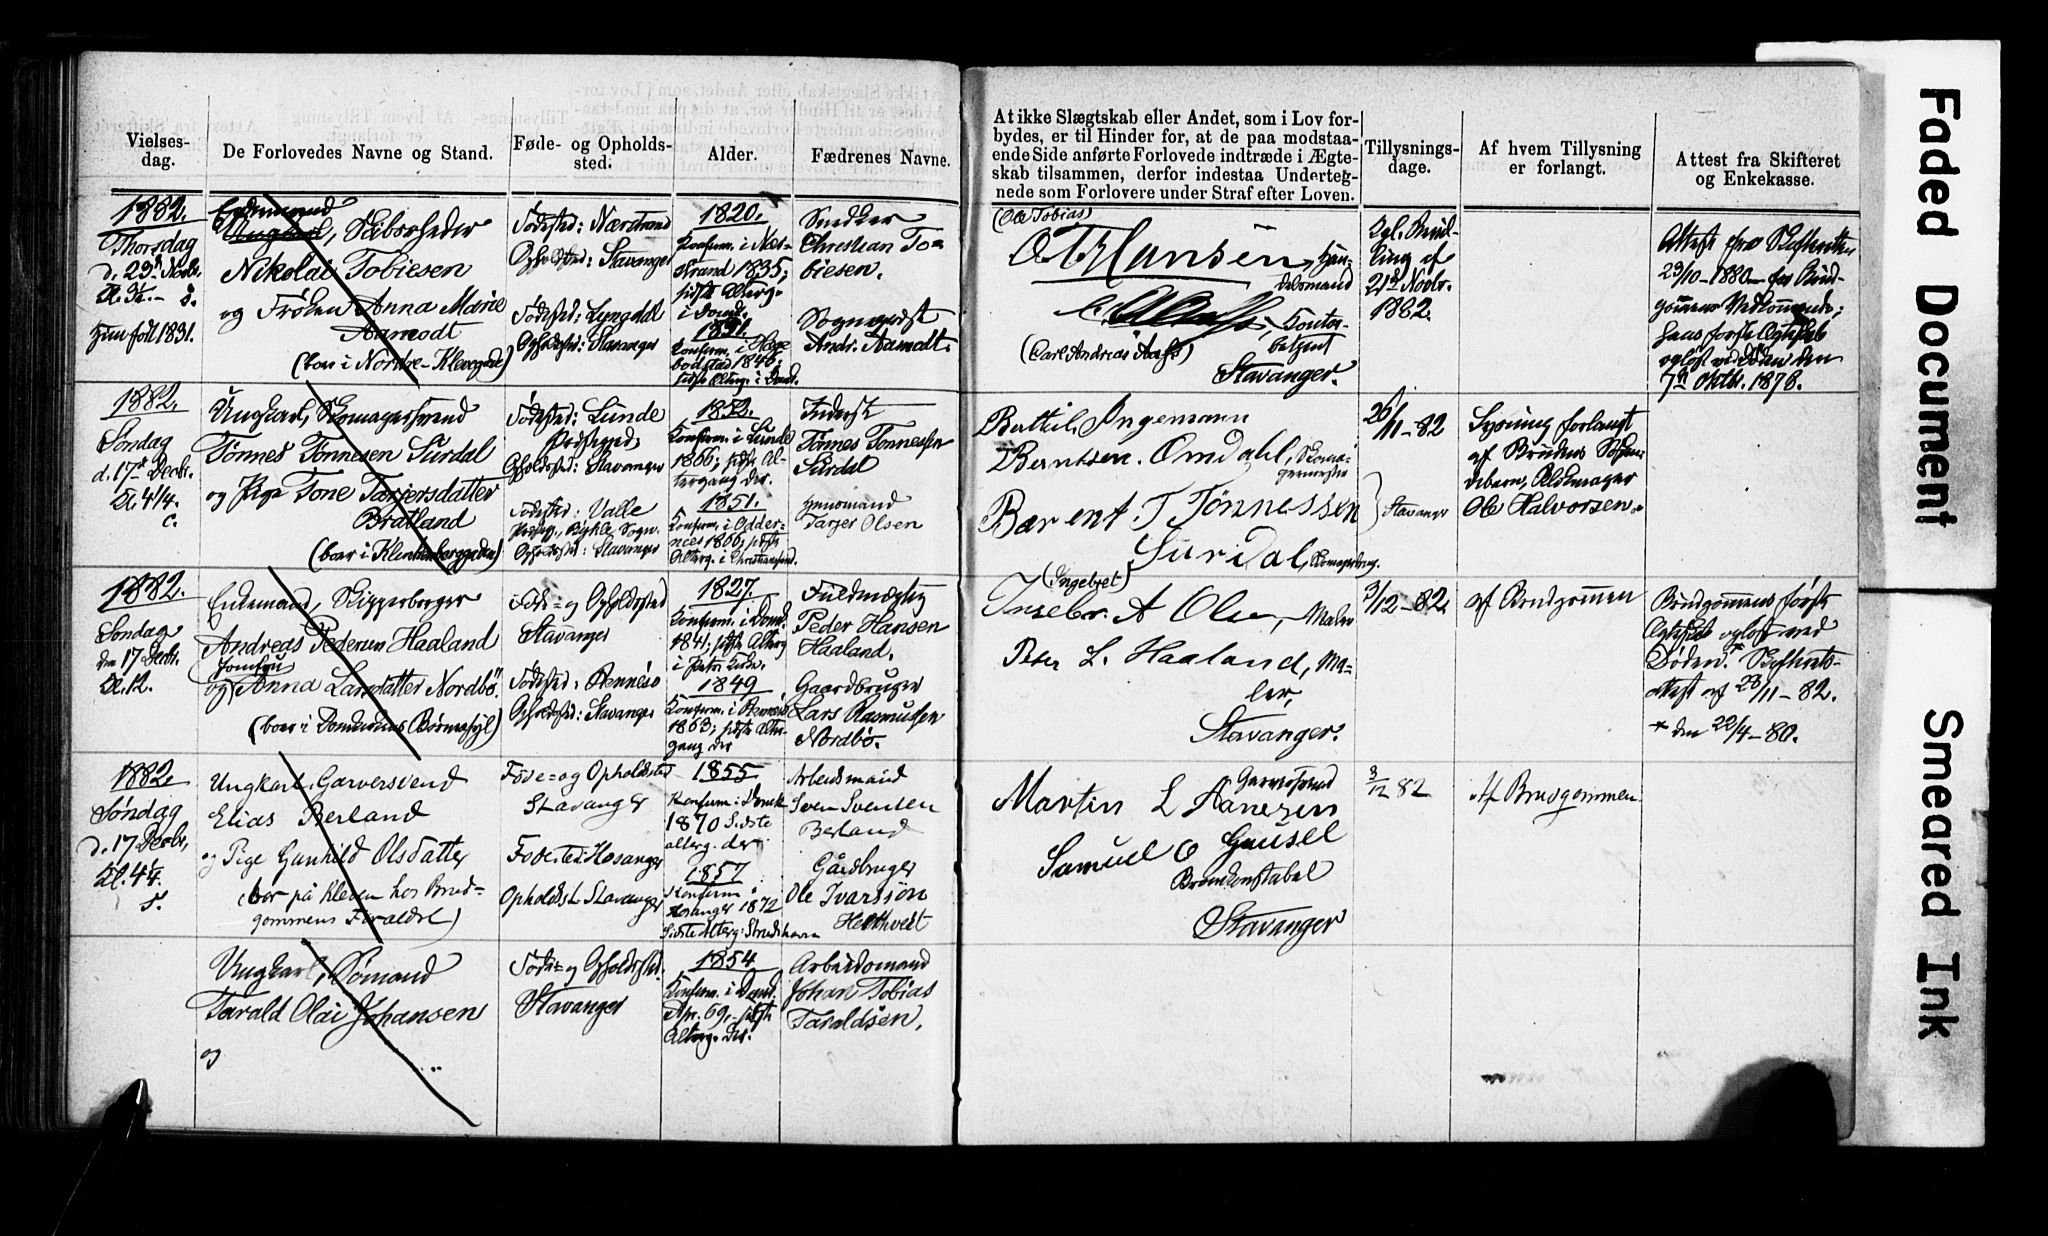 Vielses-
dag.
De Forlovedes Navne og Stand.
Føde- og Opholds-
sted.
Alder.
Fædrenes Navne.
1882.
Thorsdag
d. 23d Novbr.
Hun født 1831.
Enkemand
Ungkarl, Skibsreder
Nikolai Tobiesen
og Frøken Anna Marie
Aamodt
(boer i Nordre-Klevegade)
Fødested: Nærstrand
Opholdsted: Stavanger
Fødested: Lyngdal
Opholdsted: Stavanger
1820.
Konfirm. i Nær-
strand 1835;
sidste Alterg.
i Domk.
1831.
Konfirm. i Hæge-
bodstad 1848;
sidste Alterg. i Domk.
Snedker
Christian To-
biesen.
Sogneprest
Andr. Aamodt.
1882.
Søndag
d. 17d Decbr.
Kl. 4 1/4.
c.
Ungkarl, Skomagersvend
Tønnes Tønnesen Surdal
og Pige Tone Tarjersdatter
Bratland
Fødested: Lunde
Præstegjeld;
Opholdsted: Stavanger
Fødested: Valle
Præstegj., Bykle Sogn.
Opholdsted: Stavanger
1852.
Konfirm. i Lunde
1866; sidste Al-
tergang der.
1851.
Konfirm. i Odder-
nes 1866; sidste
Alterg. i Christianssand.
Inderst
Tønnes Tønnessen
Surdal
Huusmand
Tarjer Olsen
1882.
Søndag
den 17 Decbr.
Kl. 12.
Enkemand, Skipperborger
Andreas Pedersen Haaland
Jomfru
og Anna Larsdatter Nordbø.
Føde- og Opholdsted
Stavanger
Fødested: Rennesø
Opholdsted: Stavanger
1827.
Konfirm. i Domk.
1841; sidste Alterg.
i Petri Kirke.
1849
Konfirm. i Rennesø
1863; sidste Alter-
gang der
Fuldmægtig
Peder Hansen
Haaland.
Gaardbruger
Lars Rasmussen
Nordbø.
1882.
Søndag
d. 17 Decbr.
Kl. 4 1/4.
Ungkarl, Garversvend
Elias Berland
og Pige Gunhild Olsdatter
(bor på Kleven hos Brud-
gommens Forældre)
Føde- og Opholdsted
Stavanger
Fødested: Hosanger
Opholdst. Stavanger
1855
Konfirm. i Domk.
1870 Sidste
alterg. der
1857
Konfirm i
Hosanger 1872
Sidste alterg:
Arbeidsmand
Sven Svensen
Berland
Gårdbruger
Ole Ivarssøn
Ungkarl, Sømand
Tarald Olai Johansen
og
Føde- og Opholdsted.
Stavanger
1854
Konfirm. i Domk.
Apr. 69, sidste
Alterg. der.
Arbeidsmand
Johan Tobias
Taraldsen.
At ikke Slægtskab eller Andet, som i Lov for-
bydes, er til Hinder for, at de paa modstaa-
ende Side anførte Forlovede indtræde i Ægte-
skab tilsammen, derfor indestaa Underteg-
nede som Forlovere under Straf efter Loven.
Tillysnings-
dage.
Af hvem Tillysning
er forlangt.
Attest fra Skifteret
og Enkekasse.
(Ole Tobias)
O T Hansen, Han-
delsmand
Kontor-
betjent
(Carl Andreas Aass)
Stavanger.
Kgl. Bevil-
ling af
21d Novbr.
1882.
Attest fra Skifteretten
23/10 - 1880 for Brud-
gommens Vedkommende;
hans første Ægteskab
opløst ved Døden den
7d Oktbr. 1878.
Bertil Ingemann
Berntsen Omdahl, Skoma-
germester
Bærent T Tønnessen
Surdal,
Stavanger
26/11 - 82
Lysning forlangt
af Brudens
Ole Halvorsen.
(Ingebret)
Ingebr. A Olsen, Maler
Peter L. Haaland, Ma-
ler,
Stavanger.
3/12 - 82.
af Brudgommen
Brudgommens første
Ægteskab opløst ved
Døden.* Skifterets-
attest af 28/11 - 82.
* den 22/4 - 80.
Garversvend
Martin L Aanesen
Samuel O Gausel
Brandkonstabel
Stavanger
3/12 82
Af Brudgommen
Faded Document
Smeared Ink